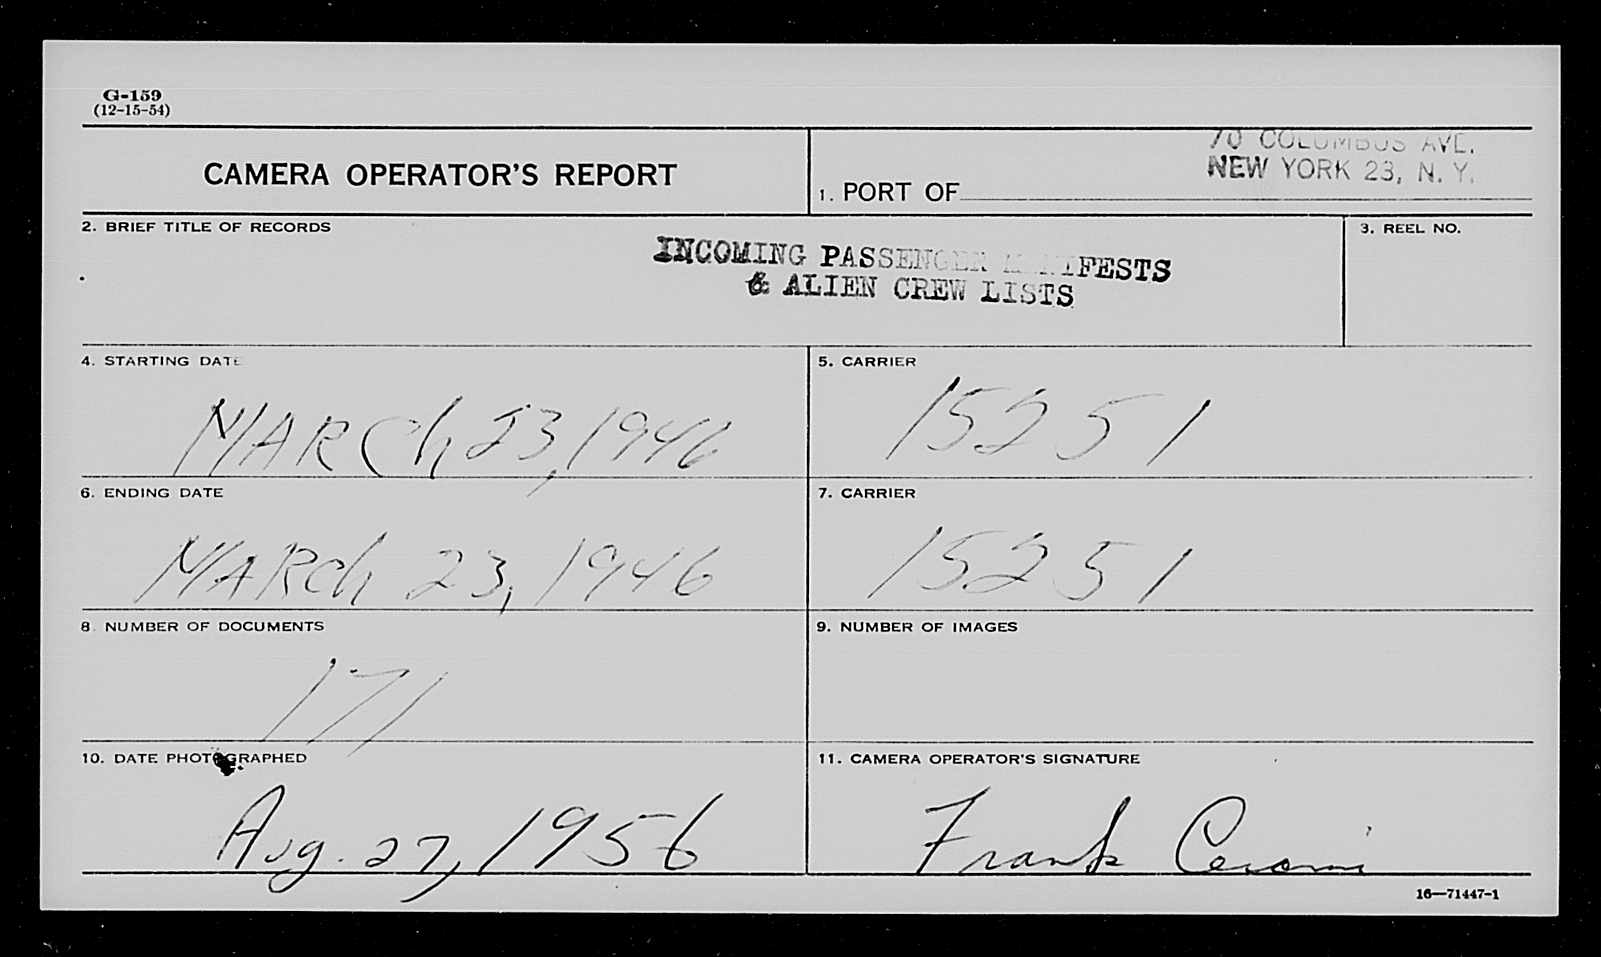 G-159
(12-15-54)
CAMERA OPERATOR'S REPORT
70 COLUMBUS AVE.
NEW YORK 23, N. Y.
1. PORT OF
2. BRIEF TITLE OF RECORDS
INCOMING PASSENGER MANIFESTS
& ALIEN CREW LISTS
3. REEL NO.
4. STARTING DATE
MARCh 23, 1946
5. CARRIER
15251
6. ENDING DATE
MARCh 23, 1946
7. CARRIER
15251
8. NUMBER OF DOCUMENTS
171
9. NUMBER OF IMAGES
10. DATE PHOTOGRAPHED
Aug. 27, 1956
11. CAMERA OPERATOR'S SIGNATURE
Frank
16—71447-1